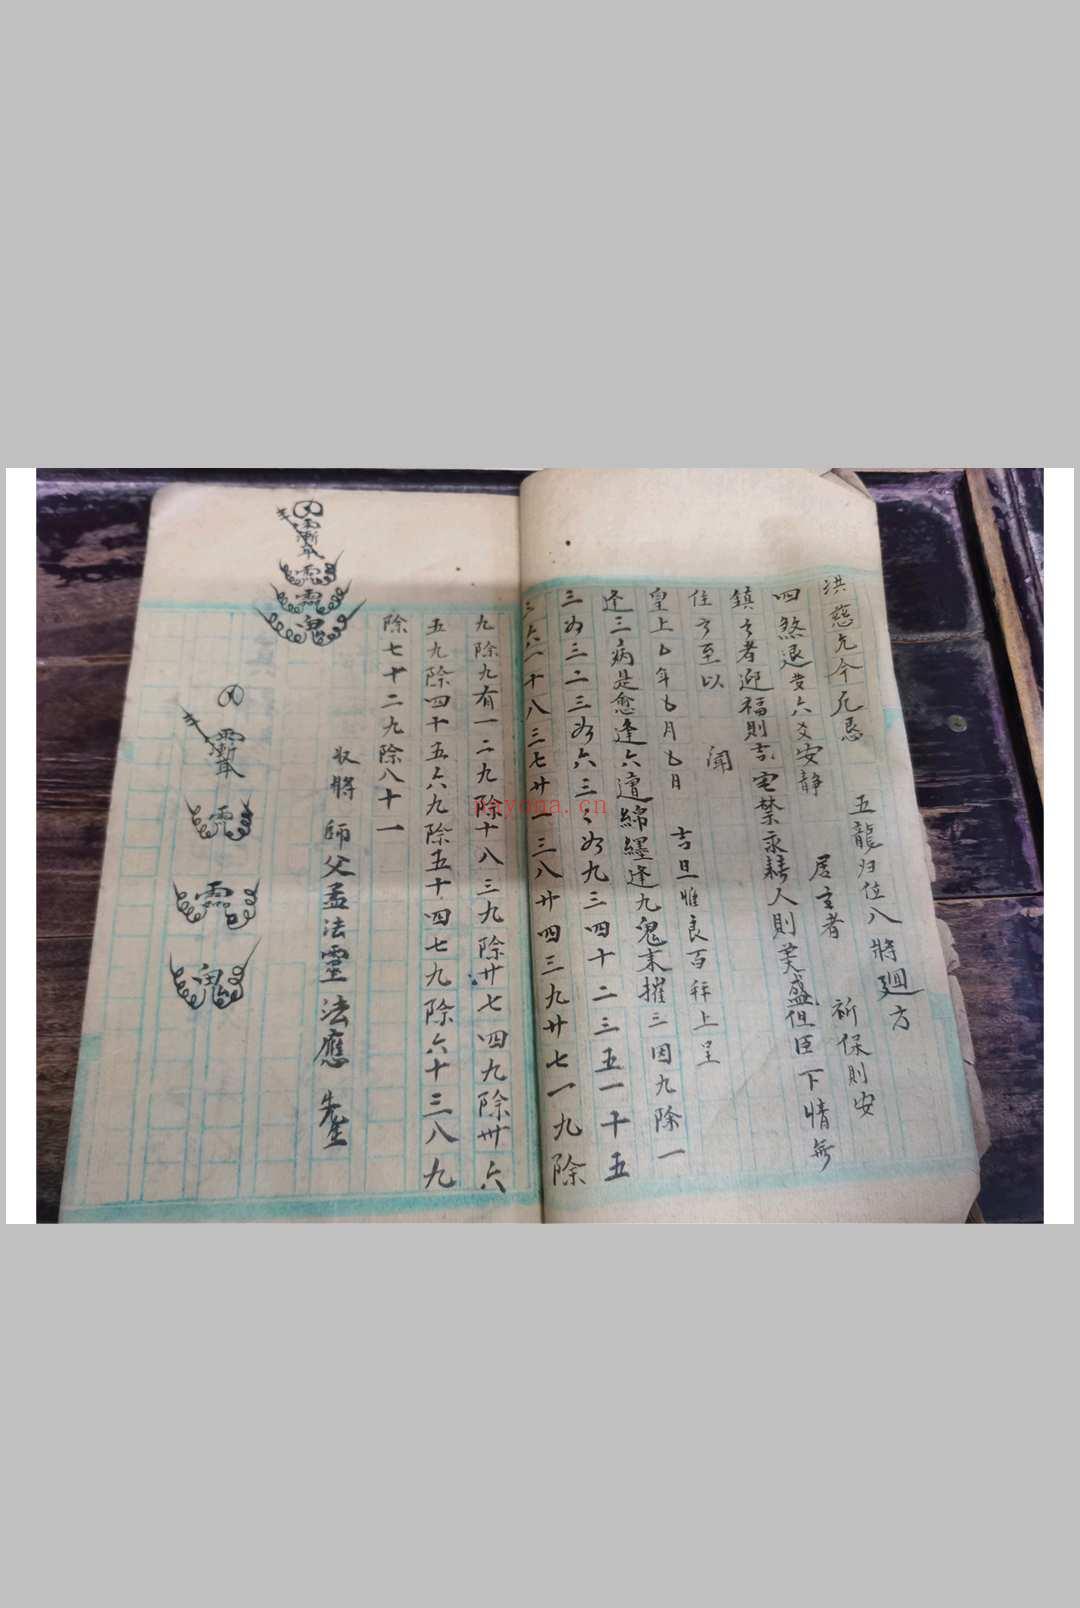 洪慈允今凡忌 五龍归位八將廻方
四煞退 六爻安静 居主者 祈保則安
鎮 者迎福則吉 宅禁 人則 盛但臣下情無
任 至以 聞
皇上 年 月 日 吉旦惟良百拜上呈
逢三病是愈逢六遭綿纏逢九鬼未摧三因九除一
三 三二三 六三 九三四十二三五一十五
三六一十八三七廿一三八廿四三九廿七一九除
九除九有一二九除十八三九除廿七四九除卅六
五九除四十五六九除五十四七九除六十三八九
除七十二九除八十一
收將 師父孟法靈法應
nayona.cn